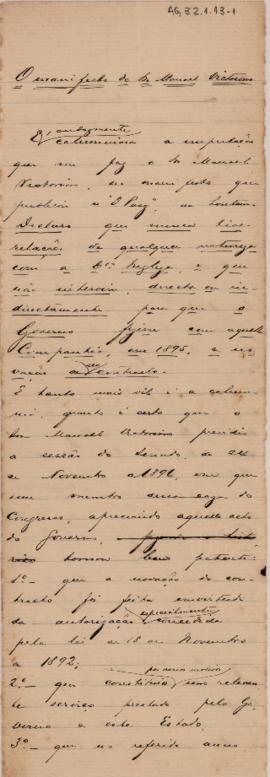 AG, 32.1.13-1
O manifesto do Dr Manoel Victorino
É altamente
calumniosa a imputação
que me faz o Sr Manoel
Victorino, em manifesto que
publicou n'"O Paiz", de
Declaro que nunca tive
relação de qualquer natureza
com a Cia , e que
não intervim directa ou in-
directamente para que o
Governo fizesse com aquella
Companhia, em 1895, a no-
vação de seu contracto.
E tanto mais vil é a calum-
nia, quanto é certo que o
Snr Manoel Victorino presidio
a sessão do Senado, de 24
de Novembro de 1896, em que
um membro dessa casa do
Congresso, apreciando aquelle acto
do Governo, tornou bem patente:
1.º - que a novação do con-
tracto foi feita em virtude
da autorização expressamente concedida
pela lei de 18 de Novembro
de 1892;
2.º - que constituia, por novos motivos, um relevan-
te serviço prestado pelo Go-
verno a este Estado;
3.º - que no referido anno